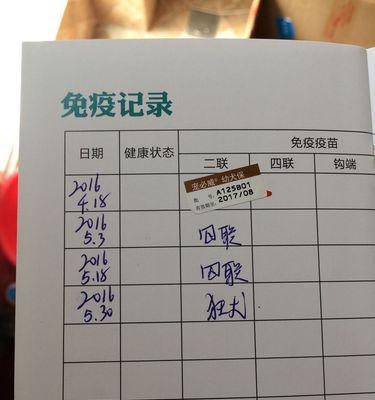 免疫记录
日期 健康状态 免疫疫苗
二联 四联 钩端
宠必威® 幼犬保
批 号: A125B01
有效期至: 2017/08
2016
4.18
2016
5.3 四联
2016
5.18 四联
2016
5.30 狂犬